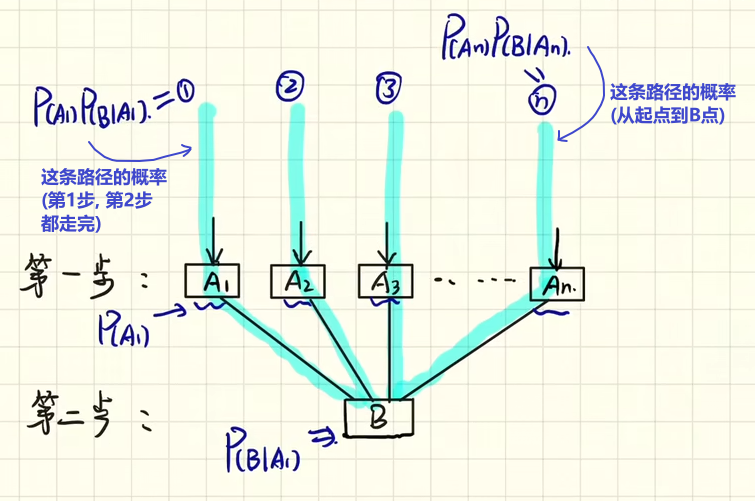 P(An)P(B|An).
P(A1)P(B|A1). = ① ② ③ ⓝ
这条路径的概率
(从起点到B点)
这条路径的概率
(第1步, 第2步
都走完)
第一步: A1 A2 A3 ・・・・・・ An.
P(A1)
第二步: B
P(B|A1)